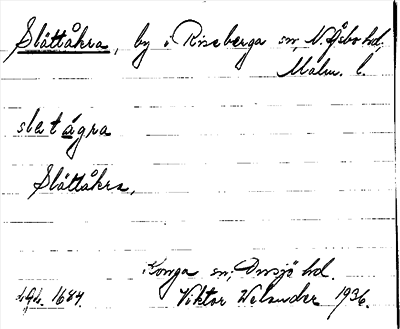 Slättåkra, by i Riseberga sn, N. Åsbo hd,
Malm. l.
slätågra
Slättåkra,
Konga sn; Onsjö hd.
1684. Viktor Welander 1936.